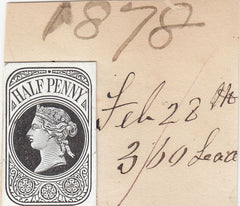 1878
HALF PENNY
Feb 28th
360 Leave